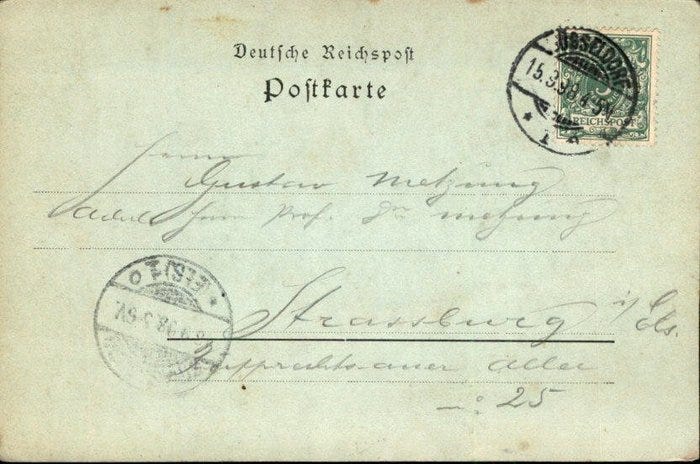 Deutsche Reichspost
Postkarte
DÜSSELDORF
15.3.98.4-5N.
* 1 *
REICHSPOST
Herrn
Gustav Metzung
Herrn Prof. Dr. Metzung
Strassburg i/ Els.
Ruprechtsauer Allee
No 25